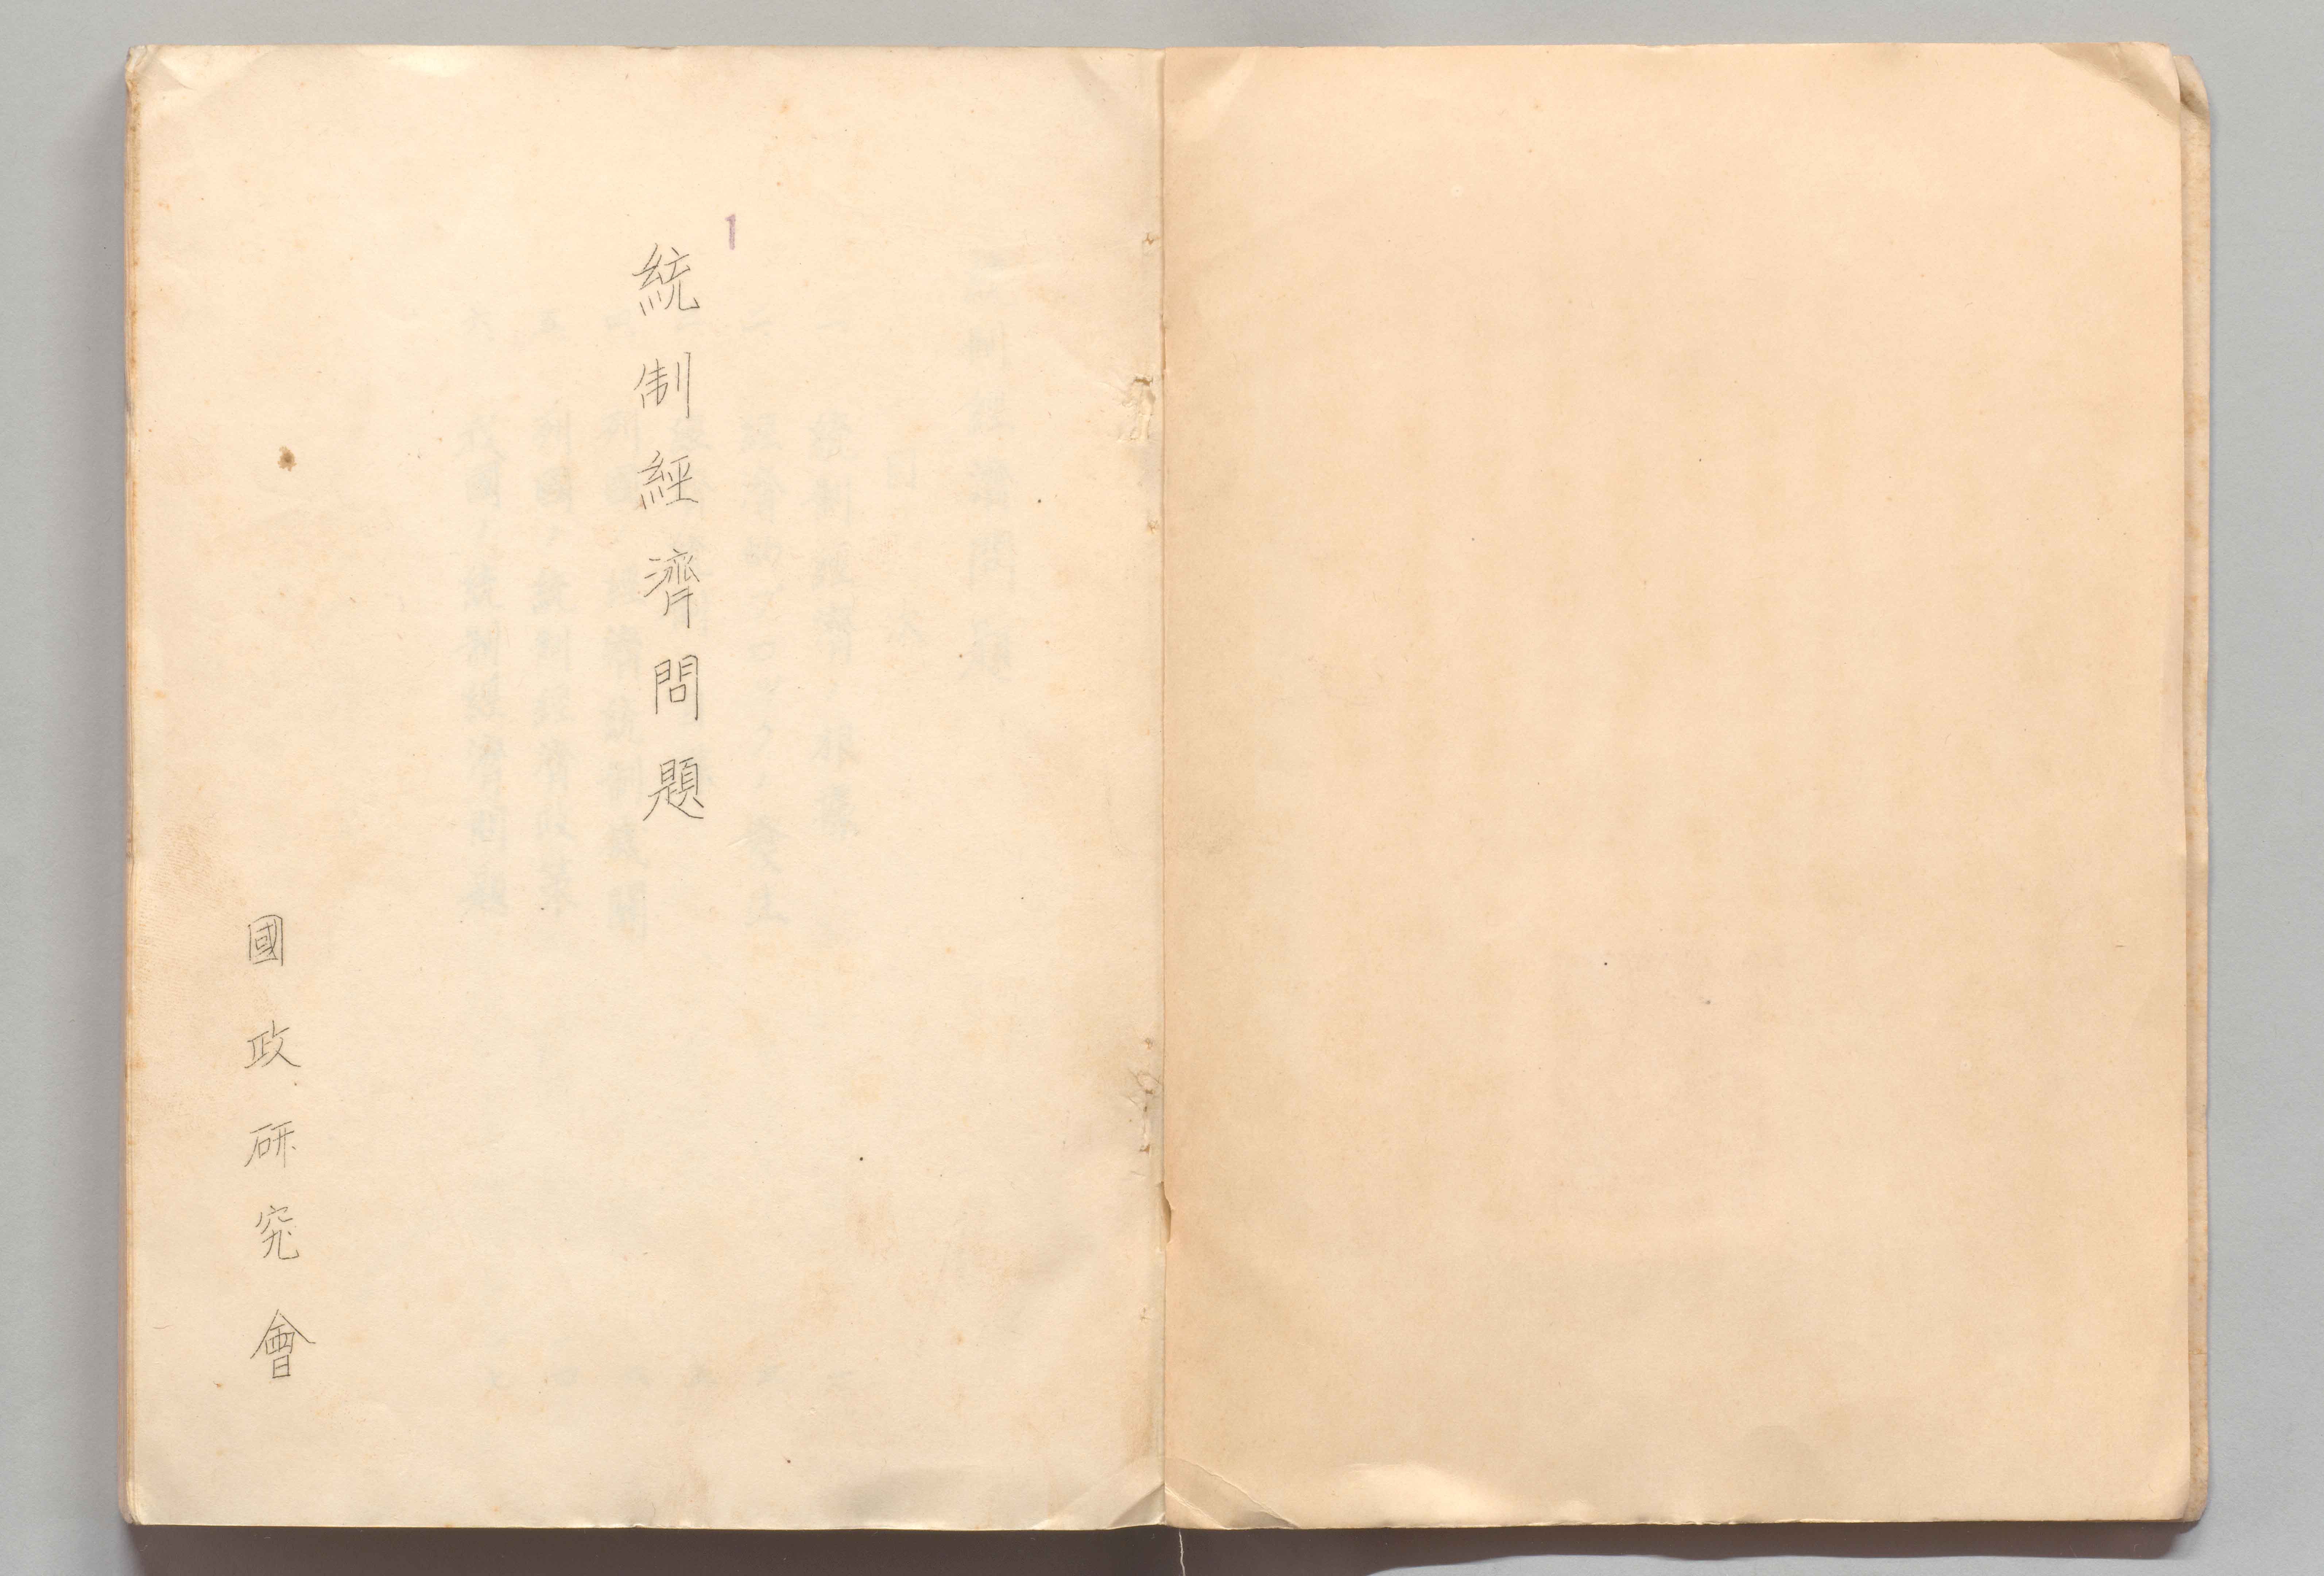 1
統制經濟問題
國政研究會